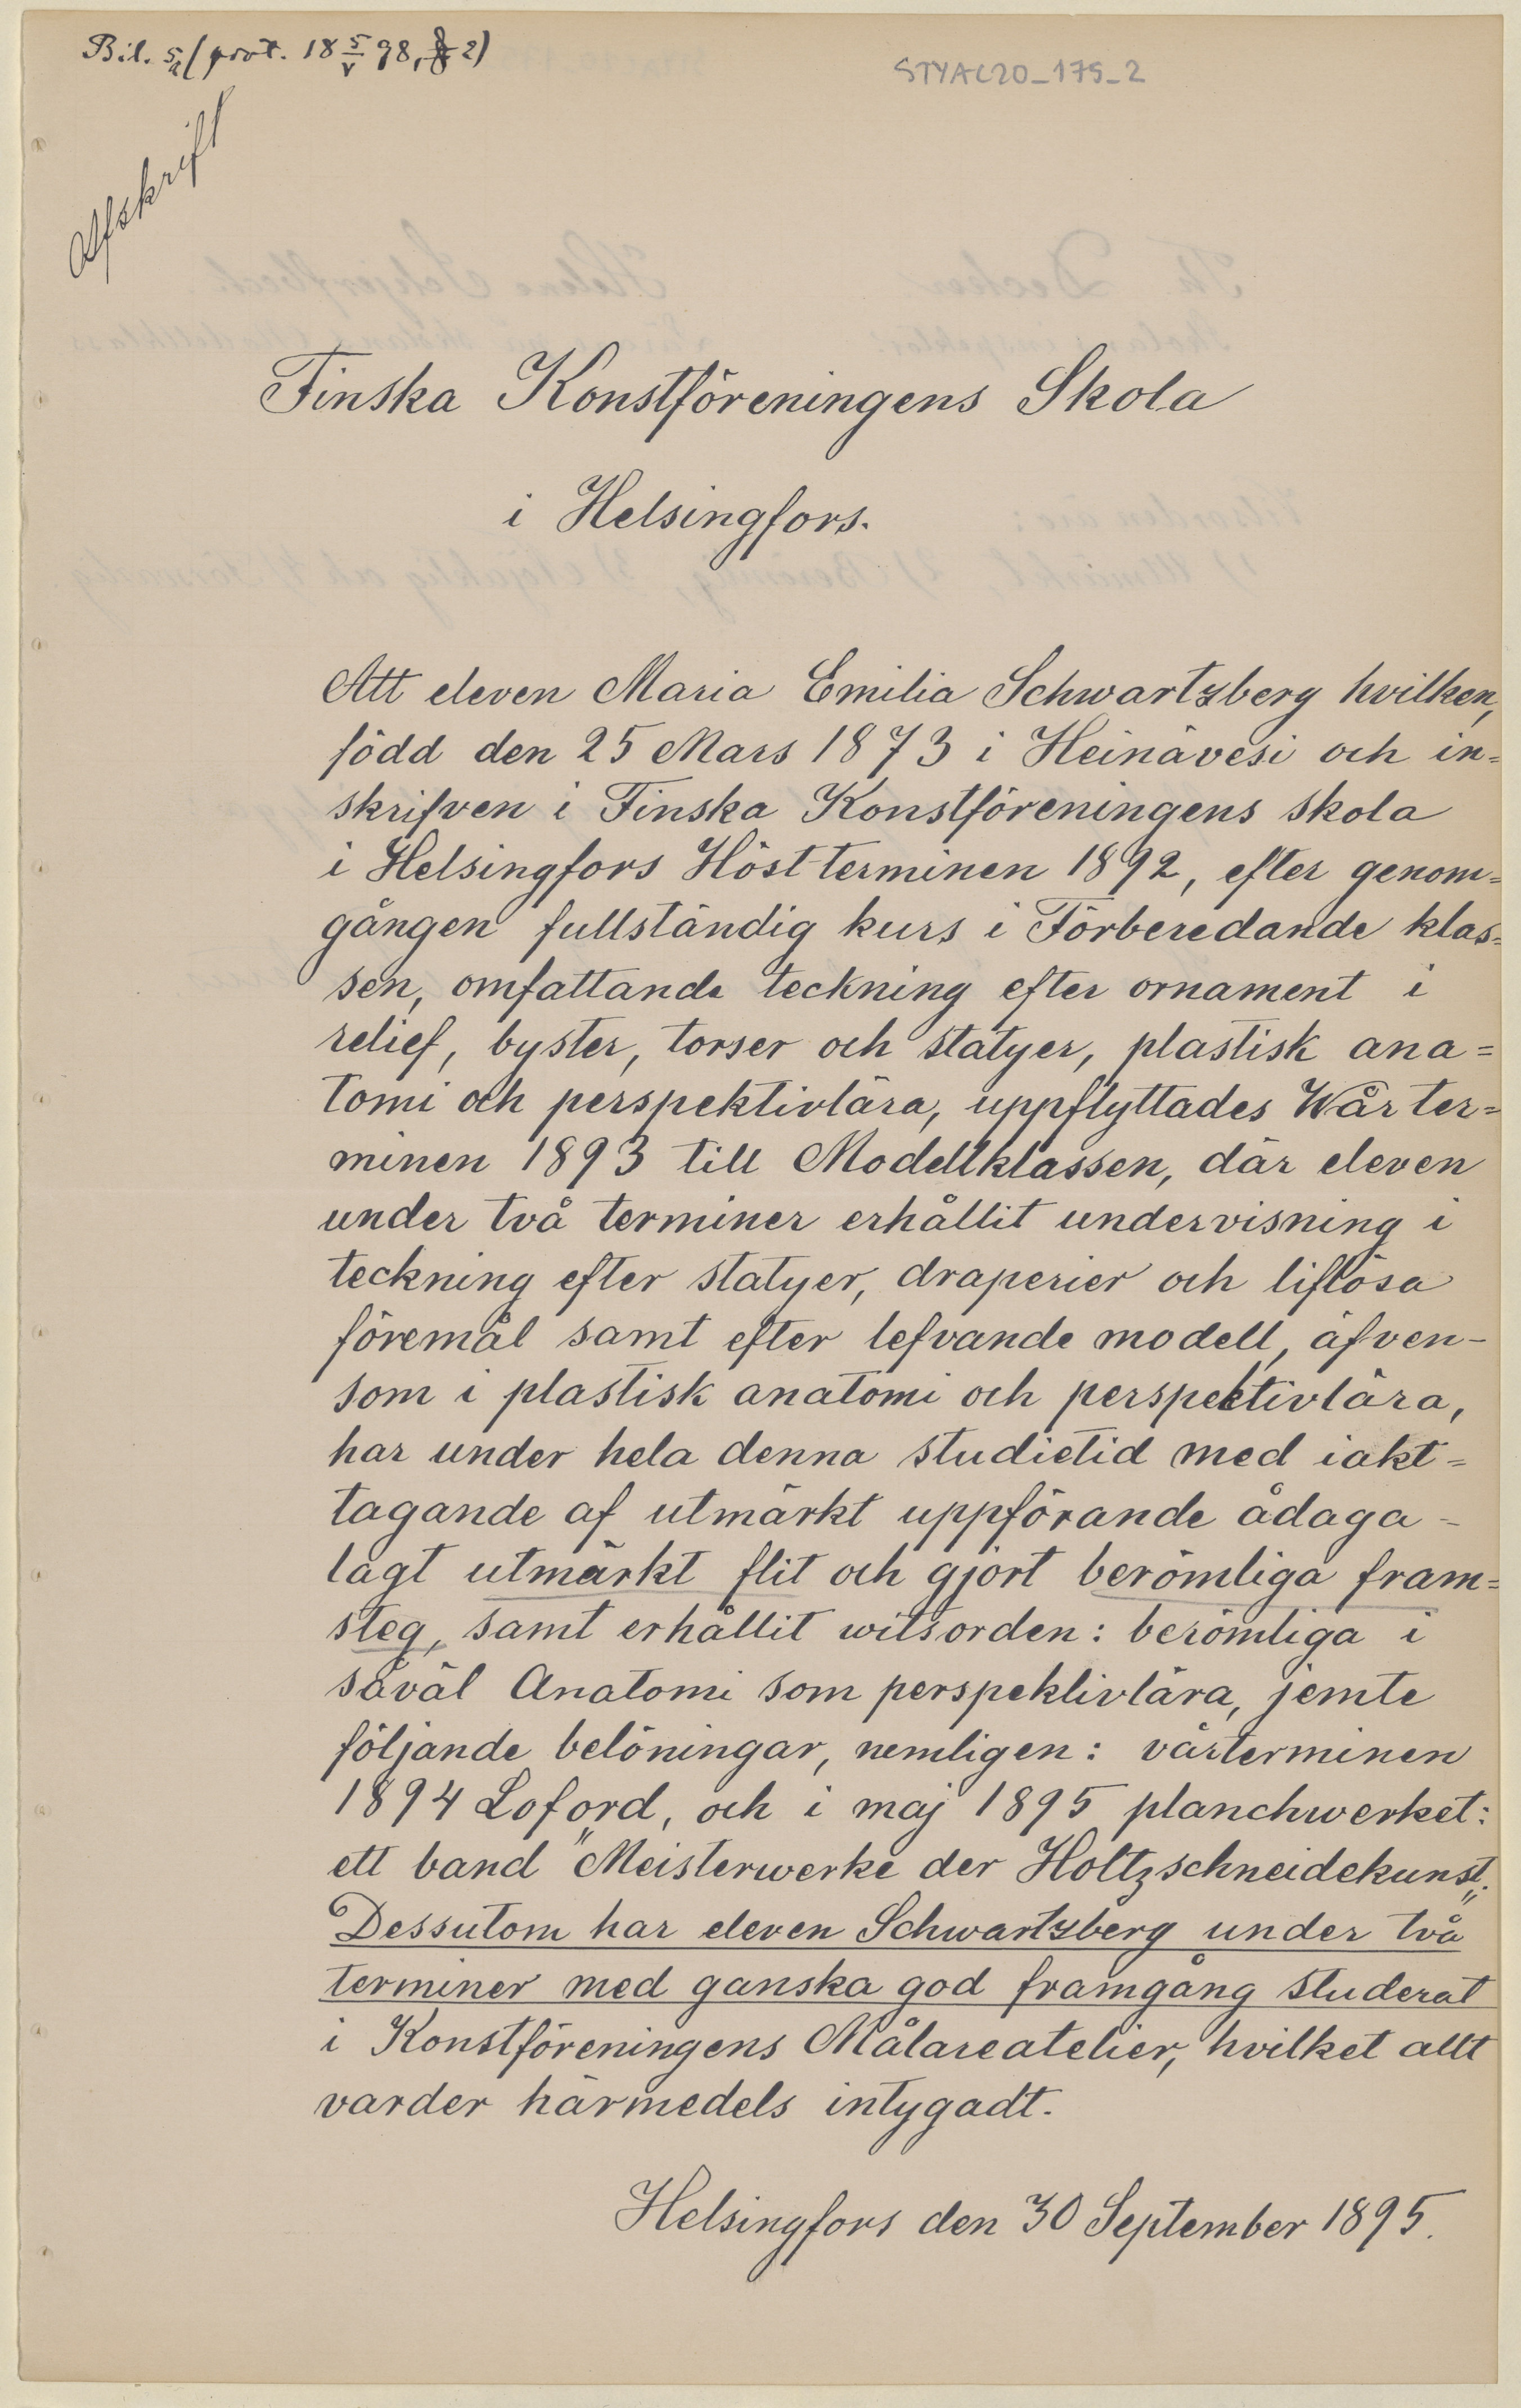 Bil. 5a (prot. 18 5/V 98, § 2)
STYAC20_175_2
Afskrift
Finska Konstföreningens Skola
i Helsingfors.
Att eleven Maria Emilia Schwartzberg hvilken,
född den 25 Mars 1873 i Heinävesi och in=
skrifven i Finska Konstföreningens skola
i Helsingfors Höstterminen 1892, efter genom=
gången fullständig kurs i Förberedande klas=
sen, omfattande teckning efter ornament i
relief, byster, torser och statyer, plastisk ana=
tomi och perspektivlära, uppflyttades Wårter=
minen 1893 till Modellklassen, där eleven
under två terminer erhållit undervisning i
teckning efter statyer, draperier och liflösa
föremål samt efter lefvande modell, äfven-
som i plastisk anatomi och perspektivlära,
har under hela denna studietid med iakt=
tagande af utmärkt uppförande ådaga-
lagt utmärkt flit och gjort berömliga fram=
steg, samt erhållit witsorden: berömliga i
såväl Anatomi som perspektivlära, jemte
följande belöningar, nemligen: vårterminen
1894 Loford, och i maj 1895 planchwerket:
ett band "Meisterwerke der Holtzschneidekunst".
Dessutom har eleven Schwartzberg under två
terminer med ganska god framgång studerat
i Konstföreningens Målareatelier, hvilket allt
varder härmedels intygadt.
Helsingfors den 30 September 1895.